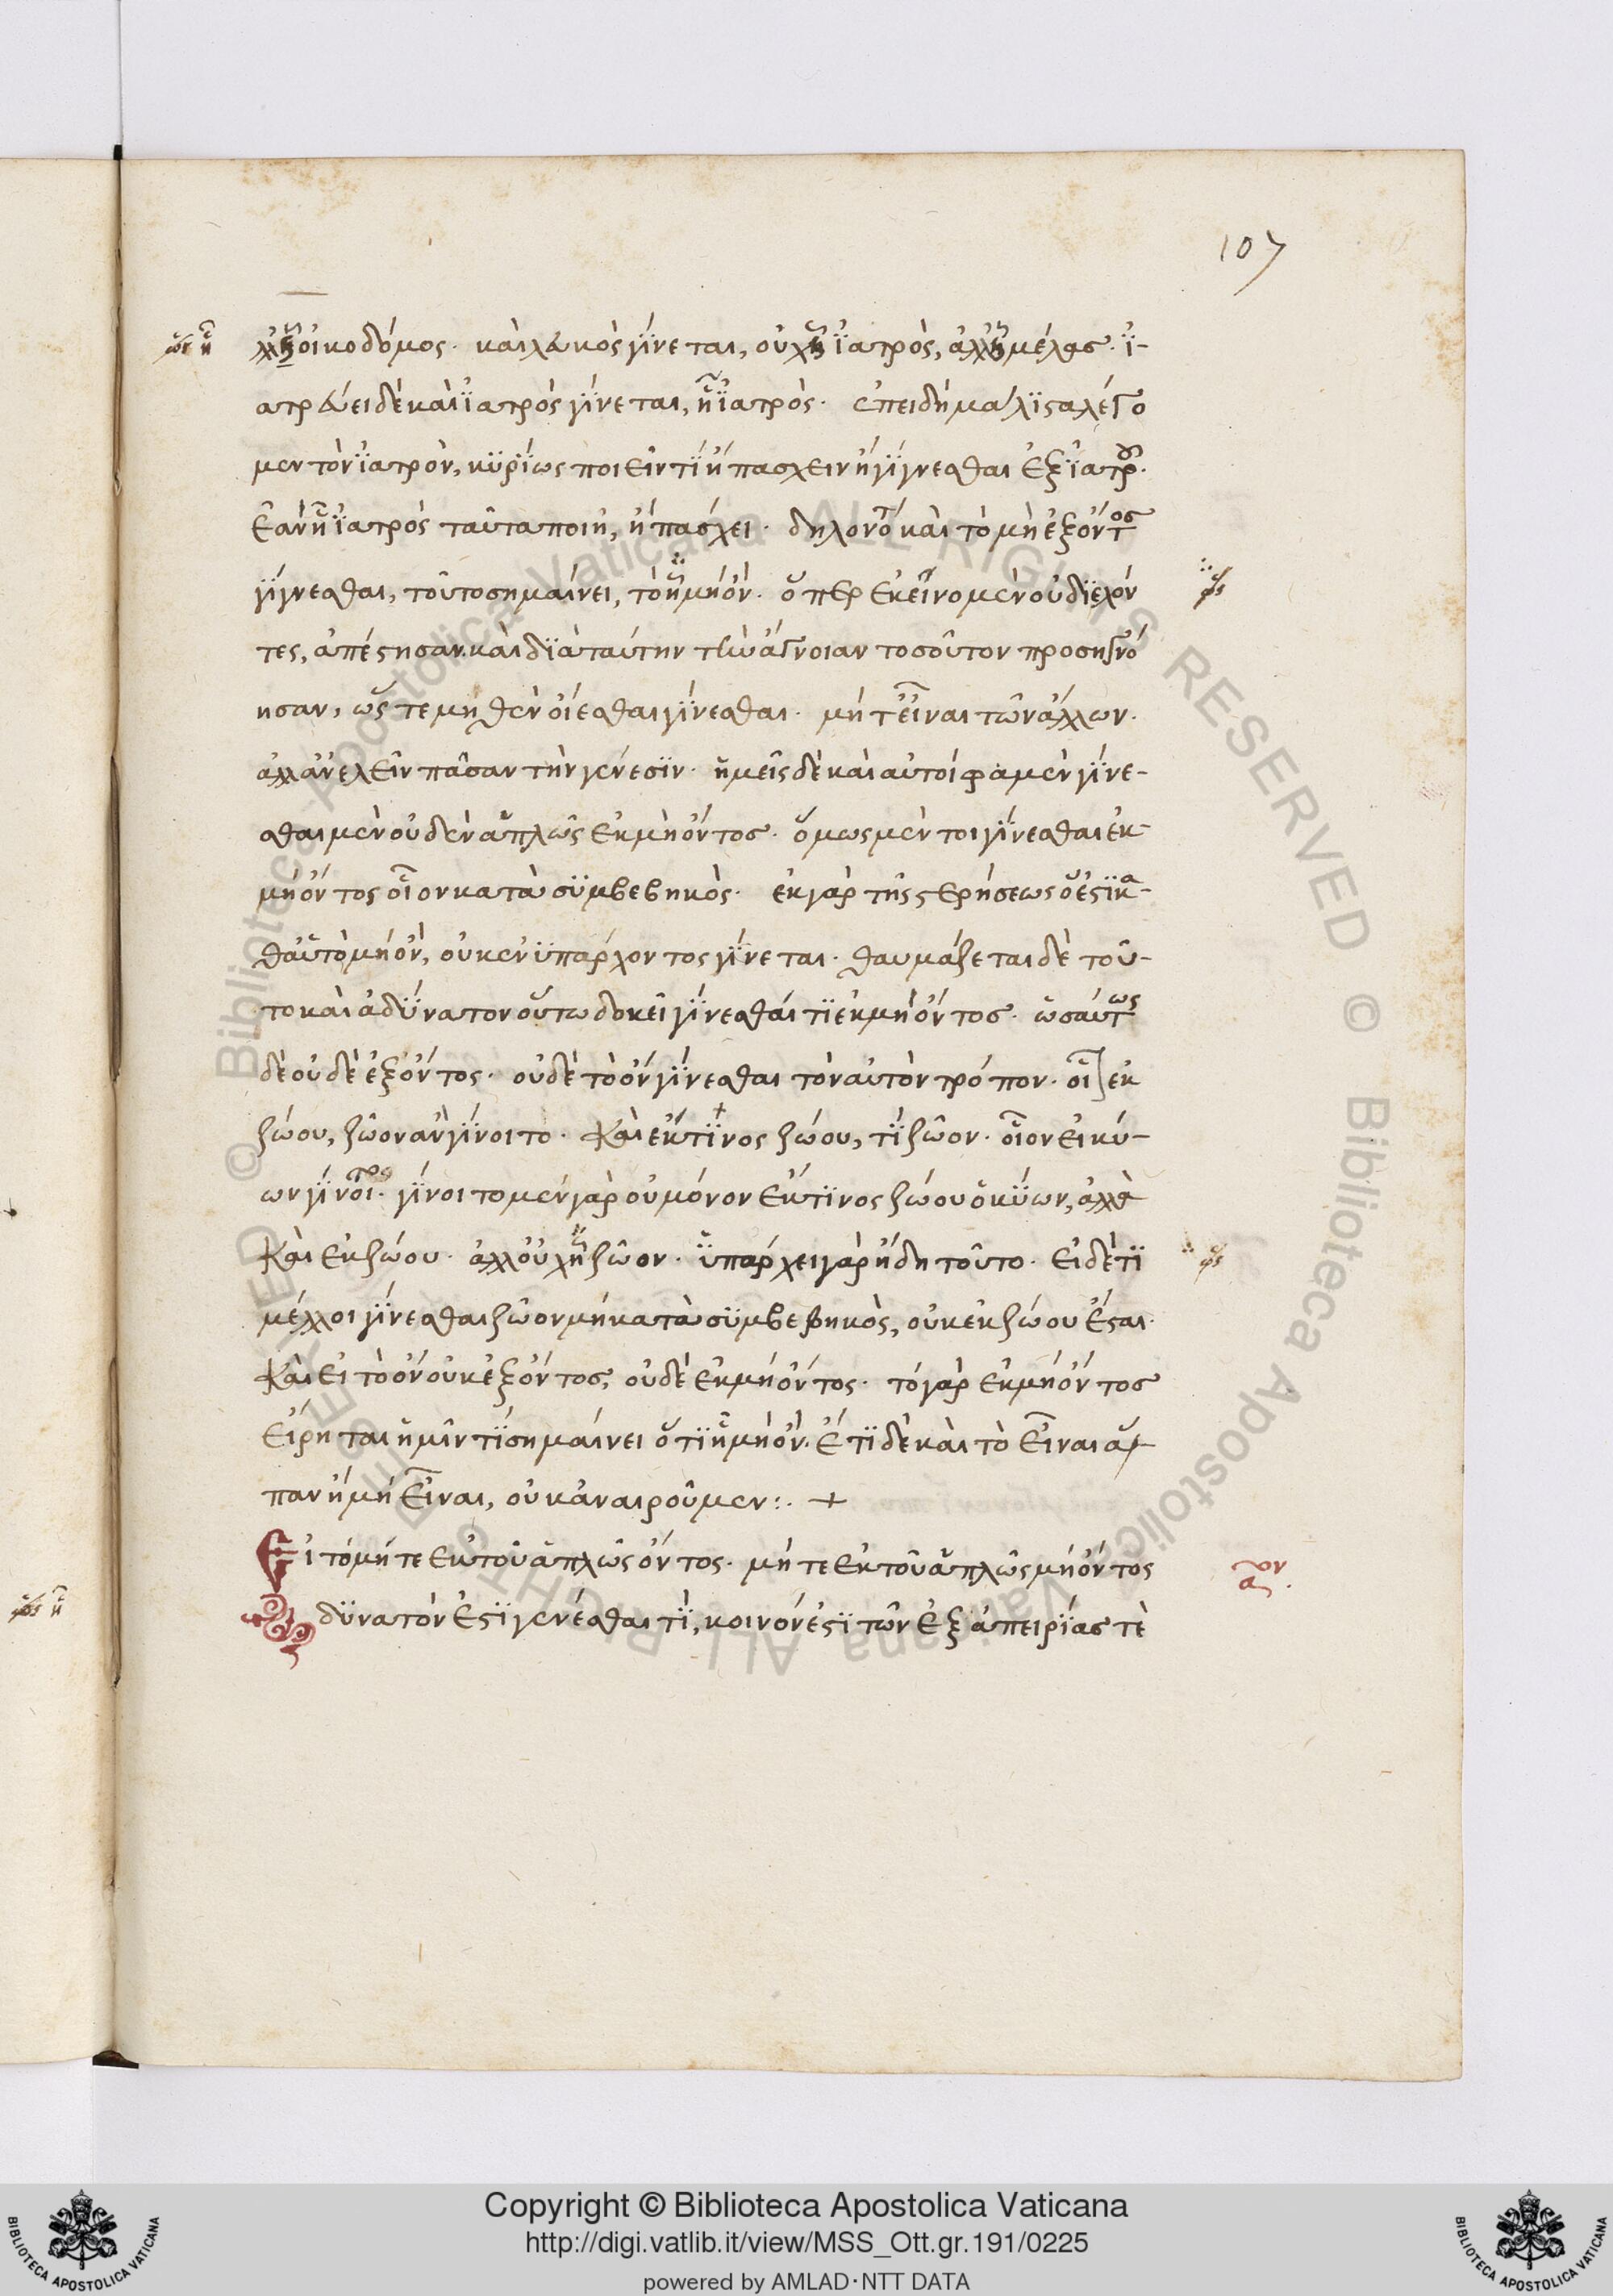 107
λλῇ οἰκοδόμος. καὶ λευκὸς γίνεται, οὐχ ᾗ ϊατρὸς, ἀλλ' ᾗ μέλας. ϊ-
ατρεύει δὲ καὶ ϊατρὸς γίνεται, ᾗ ϊατρός. ἐπειδὴ μάλϊστα λέγο
μεν τὸν ϊατρὸν, κυρίως ποιεῖν τὶ ἢ πάσχειν ἢ γίγνεσθαι ἐξ ϊατροῦ.
ἐὰν ᾗ ϊατρὸς ταῦτα ποιῇ, ἢ πάσχει. δηλονότι καὶ τὸ μὴ ἐξ ὄντος
γίγνεσθαι, τοῦτο σημαίνει, τὸ ᾗ μὴ ὄν. ὅπερ ἐκεῖνο μὲν οὐ διελόν
τες, ἀπέστησαν. καὶ διὰ ταύτην τὴν ἄγνοιαν τοσοῦτον προσηγνό
ησαν, ὥστε μηθὲν οἴεσθαι γίνεσθαι. μήτ' εἶναι τῶν ἄλλων.
ἀλλ' ἀνελεῖν πᾶσαν τὴν γένεσϊν. ἡμεῖς δὲ καὶ αὐτοί φαμεν γίνε-
σθαι μὲν οὐδὲν ἁπλῶς ἐκ μὴ ὄντος. ὅμως μέντοι γίνεσθαι ἐκ
μὴ ὄντος οἷον κατὰ συμβεβηκός. ἐκ γὰρ τῆς στερήσεως ὅ ἐστι κα-
θ' αὑτὸ μὴ ὄν, οὐκ ἐνυπάρχοντος γίνεται. θαυμάζεται δὲ τοῦ-
το καὶ ἀδύνατον οὕτω δοκεῖ γίνεσθαί τι ἐκ μὴ ὄντος. ὡσαύτως
δὲ οὐδὲ ἐξ ὄντος. οὐδὲ τὸ ὂν γίνεσθαι τὸν αὐτὸν τρόπον. οἷ] ἐκ
ζώου, ζῶον ἂν γίνοιτο. καὶ ἐκ τινος ζώου, τὶ ζῶον. οἷον εἰ κύ-
ων γίνοι. γίνοιτο μὲν γὰρ οὐ μόνον ἐκ τινος ζώου ὁ κύων, ἀλλὰ
καὶ ἐκ ζώου. ἀλλ' οὐχ ᾗ ζῶον. ὑπάρχει γὰρ ἤδη τοῦτο. εἰ δέ τι
μέλλοι γίνεσθαι ζῶον μὴ κατὰ συμβεβηκὸς, οὐκ ἐκ ζώου ἔσται.
καὶ εἰ τὸ ὂν οὐκ ἐξ ὄντος, οὐδὲ ἐκ μὴ ὄντος. τὸ γὰρ ἐκ μὴ ὄντος
εἴρηται ἡμῖν τί σημαίνει ὅτι ᾗ μὴ ὄν. ἔτι δὲ καὶ τὸ εἶναι ἅ-
παν ἢ μὴ εἶναι, οὐκ ἀναιροῦμεν:. +
Εἰ τὸ μήτε ἐκ τοῦ ἁπλῶς ὄντος. μήτε ἐκ τοῦ ἁπλῶς μὴ ὄντος
δυνατόν ἐστι γενέσθαι τί, κοινόν ἐστι τῶν ἐξ ἀπειρίας τὲ
Copyright © Biblioteca Apostolica Vaticana
http://digi.vatlib.it/view/MSS_Ott.gr.191/0225
powered by AMLAD·NTT DATA